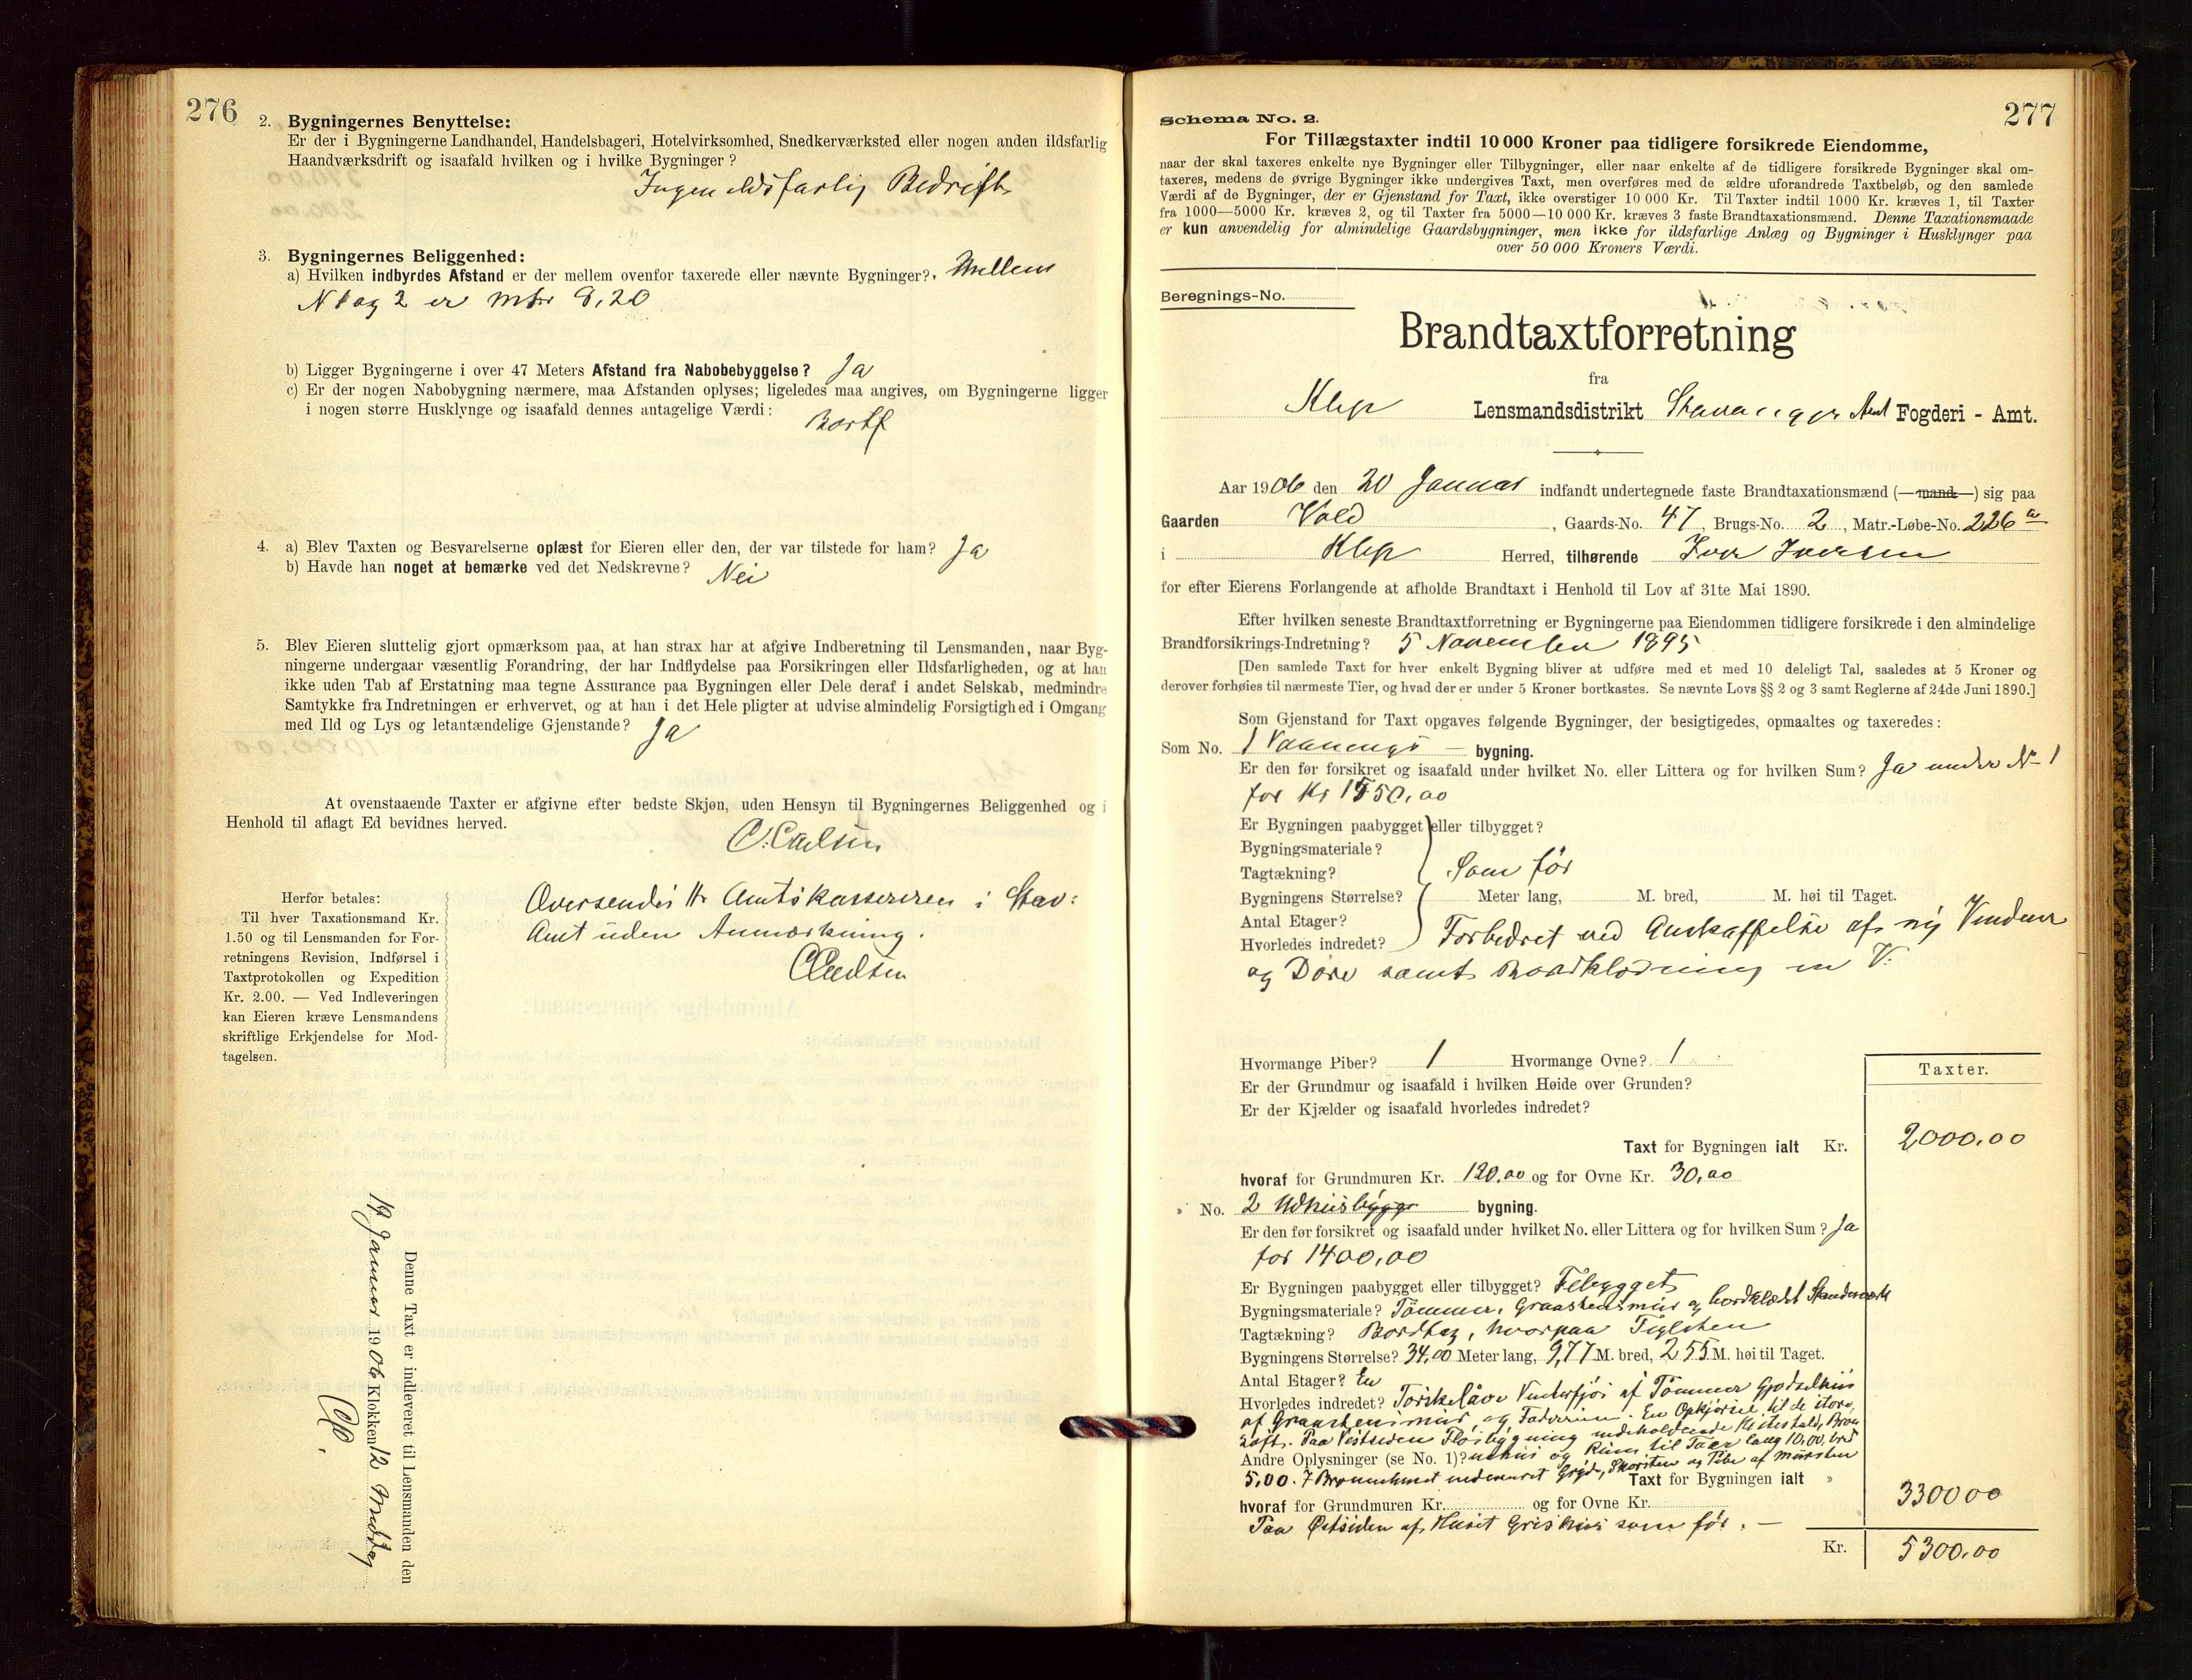 276
2. Bygningernes Benyttelse:
Er der i Bygningerne Landhandel, Handelsbageri, Hotelvirksomhed, Snedkerværksted eller nogen anden ildsfarlig
Haandværksdrift og isaafald hvilken og i hvilke Bygninger?
Ingen ildsfarlig Bedrift
3. Bygningernes Beliggenhed:
a) Hvilken indbyrdes Afstand er der mellem ovenfor taxerede eller nævnte Bygninger? Mellem
N 1 og 2 er mtr 8,20
b) Ligger Bygningerne i over 47 Meters Afstand fra Nabobebyggelse? Ja
c) Er der nogen Nabobygning nærmere, maa Afstanden oplyses; ligeledes maa angives, om Bygningerne ligger
i nogen større Husklynge og isaafald dennes antagelige Værdi:
Bortf
4. a) Blev Taxten og Besvarelserne oplæst for Eieren eller den, der var tilstede for ham? Ja
b) Havde han noget at bemærke ved det Nedskrevne? Nei
5. Blev Eieren sluttelig gjort opmærksom paa, at han strax har at afgive Indberetning til Lensmanden, naar Byg-
ningerne undergaar væsentlig Forandring, der har Indflydelse paa Forsikringen eller Ildsfarligheden, og at han
ikke uden Tab af Erstatning maa tegne Assurance paa Bygningen eller Dele deraf i andet Selskab, medmindre
Samtykke fra Indretningen er erhvervet, og at han i det Hele pligter at udvise almindelig Forsigtighed i Omgang
med Ild og Lys og letantændelige Gjenstande? Ja
At ovenstaaende Taxter er afgivne efter bedste Skjøn, uden Hensyn til Bygningernes Beliggenhed og i
Henhold til aflagt Ed bevidnes herved.
C. Carlsen
Herfor betales:
Til hver Taxationsmand Kr.
1.50 og til Lensmanden for For-
retningens Revision, Indførsel i
Taxtprotokollen og Expedition
Kr. 2.00. — Ved Indleveringen
kan Eieren kræve Lensmandens
skriftlige Erkjendelse for Mod-
tagelsen.
Oversendes Hr Amtskassereren i Stav:
Amt uden Anmærkning.
C Carlsen
Denne Taxt er indleveret til Lensmanden den
19 Januar 1906 Klokken 12 Middag
277
Schema No. 2.
For Tillægstaxter indtil 10 000 Kroner paa tidligere forsikrede Eiendomme,
naar der skal taxeres enkelte nye Bygninger eller Tilbygninger, eller naar enkelte af de tidligere forsikrede Bygninger skal om-
taxeres, medens de øvrige Bygninger ikke undergives Taxt, men overføres med de ældre uforandrede Taxtbeløb, og den samlede
Værdi af de Bygninger, der er Gjenstand for Taxt, ikke overstiger 10 000 Kr. Til Taxter indtil 1000 Kr. kræves 1, til Taxter
fra 1000—5000 Kr. kræves 2, og til Taxter fra 5000—10 000 Kr. kræves 3 faste Brandtaxationsmænd. Denne Taxationsmaade
er kun anvendelig for almindelige Gaardsbygninger, men ikke for ildsfarlige Anlæg og Bygninger i Husklynger paa
over 50 000 Kroners Værdi.
Beregnings-No.
Brandtaxtforretning
fra
Klep Lensmandsdistrikt Stavanger Amt Fogderi - Amt.
Aar 1906 den 20 Januar indfandt undertegnede faste Brandtaxationsmænd (—mand—) sig paa
Gaarden Vold, Gaards-No. 47, Brugs-No. 2, Matr.-Løbe-No. 226 a
i Klep Herred, tilhørende Ivar Iversen
for efter Eierens Forlangende at afholde Brandtaxt i Henhold til Lov af 31te Mai 1890.
Efter hvilken seneste Brandtaxtforretning er Bygningerne paa Eiendommen tidligere forsikrede i den almindelige
Brandforsikrings-Indretning? 5 November 1895
[Den samlede Taxt for hver enkelt Bygning bliver at udføre med et med 10 deleligt Tal, saaledes at 5 Kroner og
derover forhøies til nærmeste Tier, og hvad der er under 5 Kroner bortkastes. Se nævnte Lovs §§ 2 og 3 samt Reglerne af 24de Juni 1890.]
Som Gjenstand for Taxt opgaves følgende Bygninger, der besigtigedes, opmaaltes og taxeredes:
Som No. 1 Vaanings — bygning.
Er den før forsikret og isaafald under hvilket No. eller Littera og for hvilken Sum? Ja under N 1
for Kr 1550,00
Er Bygningen paabygget eller tilbygget?
Bygningsmateriale?
Tagtækning? Som før
Bygningens Størrelse? Meter lang, M. bred, M. høi til Taget.
Antal Etager?
Hvorledes indredet? Forbedret ved Anskaffelse af ny Vinduer
og Døre samt Bordklædning m V.
Hvormange Piber? 1 Hvormange Ovne? 1
Er der Grundmur og isaafald i hvilken Høide over Grunden?
Er der Kjælder og isaafald hvorledes indredet?
Taxter.
Taxt for Bygningen ialt Kr. 2000,00
hvoraf for Grundmuren Kr. 120,00 og for Ovne Kr. 30,00
" No. 2 Udhusbygge bygning.
Er den før forsikret og isaafald under hvilket No. eller Littera og for hvilken Sum? Ja
for 1400,00
Er Bygningen paabygget eller tilbygget? Tilbygget
Bygningsmateriale? Tømmer, Graastensmur og bordklædt Standerværk
Tagtækning? Bordtag, hvorpaa Teglsten
Bygningens Størrelse? 34,00 Meter lang, 9,77 M. bred, 255 M. høi til Taget.
Antal Etager? En
Hvorledes indredet? Torskelåve Vinterfjøs af Tømmer Gjødselhus
af Graastensmur, og Foderrum. En Opkjørsel til de store
Loft. Paa Vestsiden Fløibygning indeholdende Hestestald, Brøn
Andre Oplysninger (se No. 1)? nehus og Rum til Taar lang 10,00, bred
5,00. I Brønnehuset indmuret Gryde, Skorsten og Pibe af Mursten
Taxt for Bygningen ialt " 3300 00
hvoraf for Grundmuren Kr. og for Ovne Kr.
Paa Østsiden af Huset Grishus som før. —
Kr. 5300,00